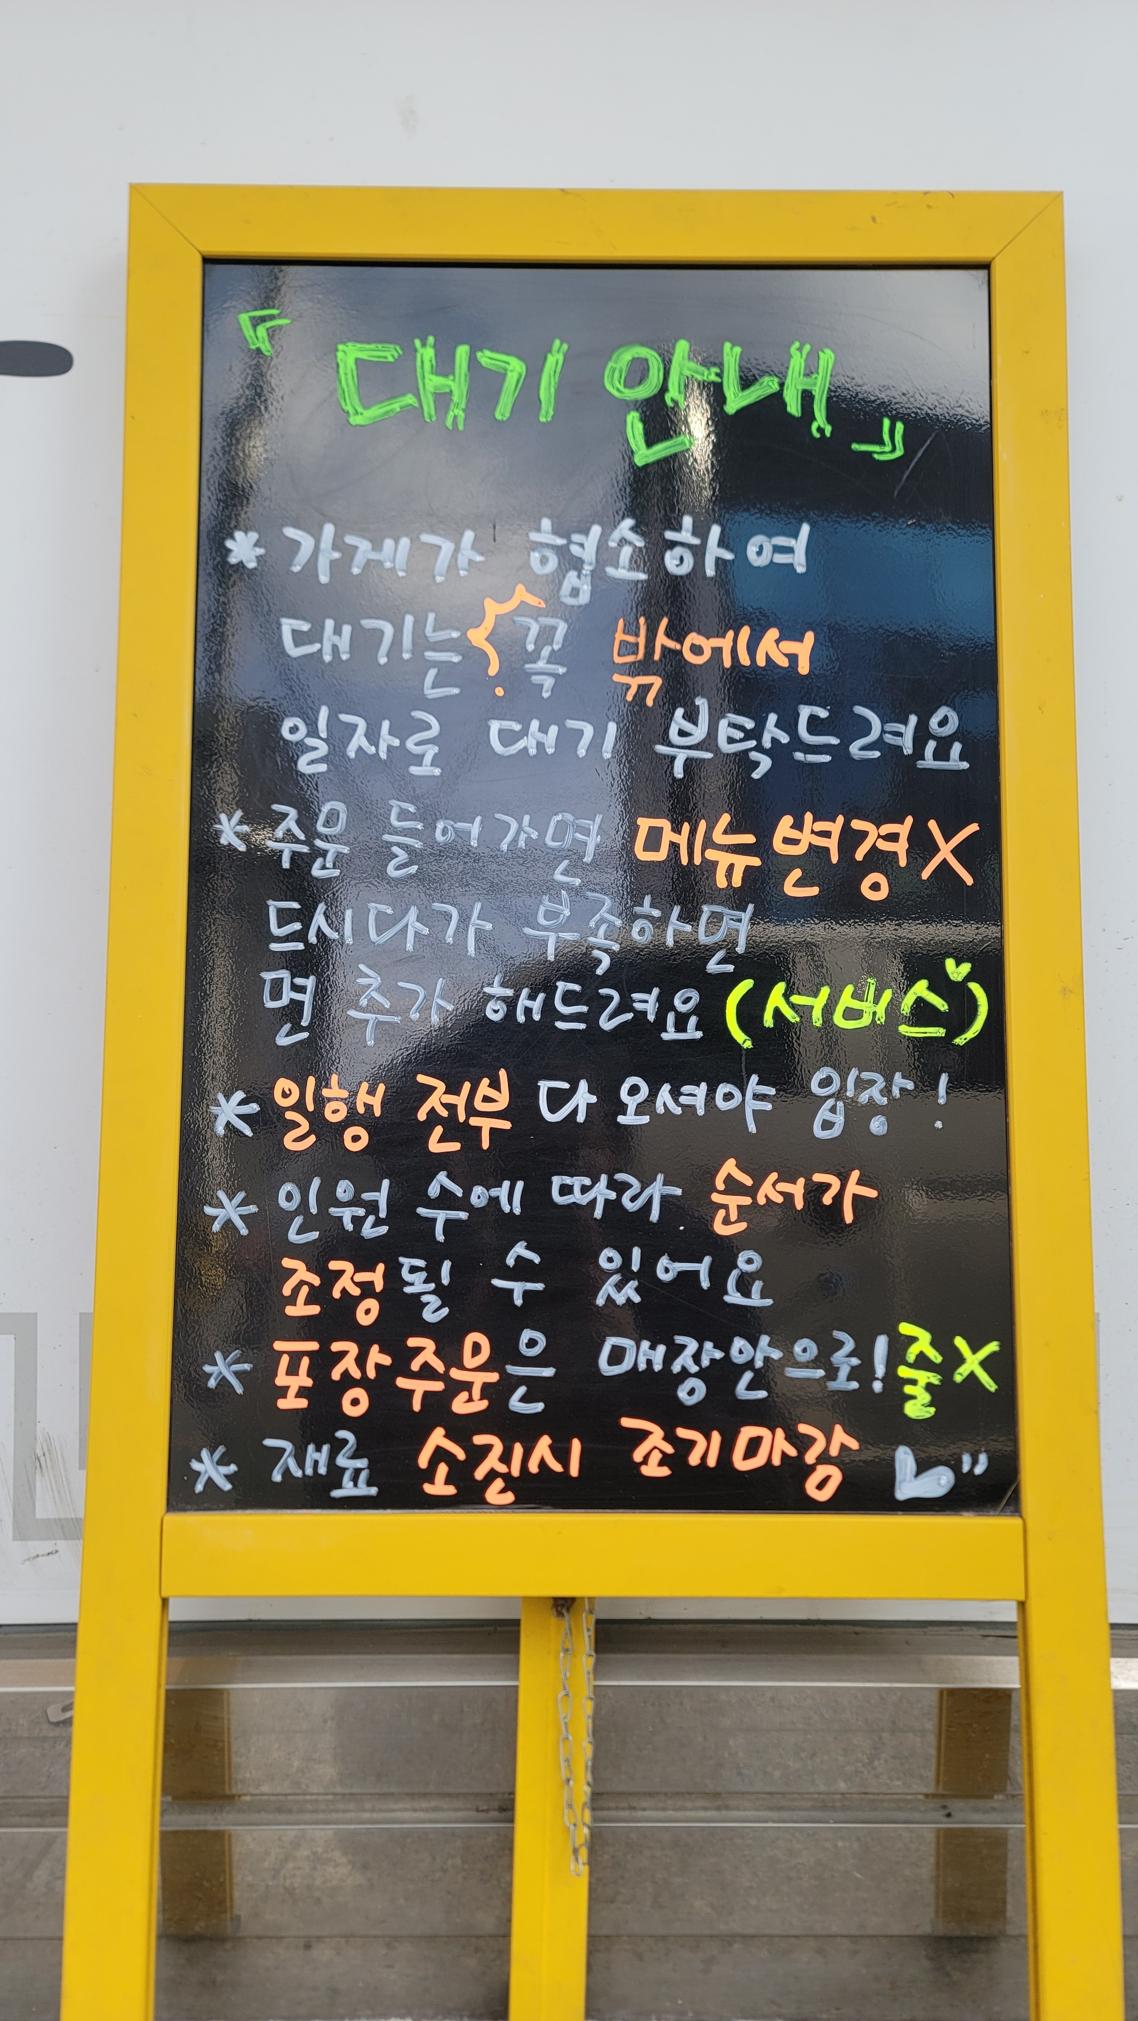 『 대기 안내 』
* 가게가 협소하여
대기는 꼭 밖에서
일자로 대기 부탁드려요
* 주문 들어가면 메뉴변경X
드시다가 부족하면
면 추가 해드려요 (서비스)
* 일행 전부 다 오셔야 입장!
* 인원 수에 따라 순서가
조정될 수 있어요
* 포장주문은 매장안으로! 줄X
* 재료 소진시 조기마감